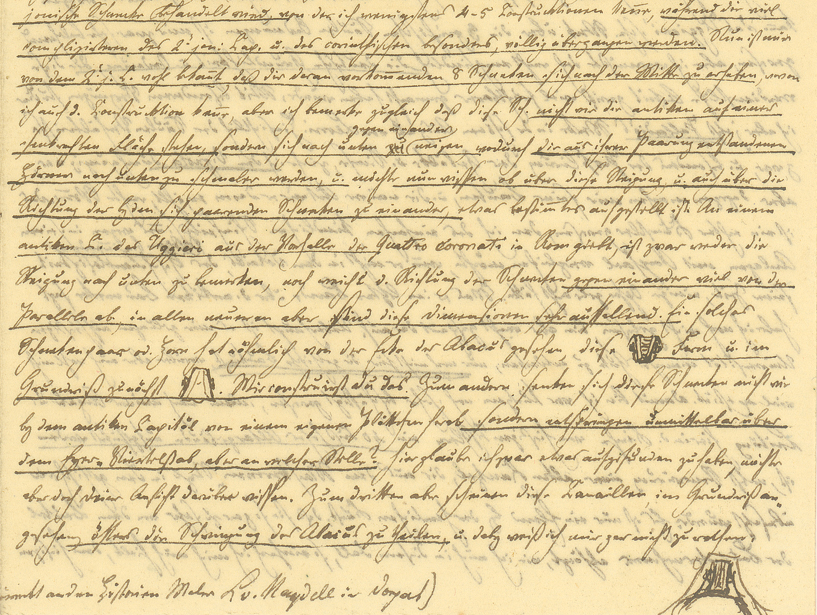 jonische Schnecke behandelt wird, von der ich wenigstens 4-5 Constructionen kenne, während die viel
complizirteren des K. jon. Cap. u. des corinthischen besonders, völlig übergangen werden. Nun ist mir
von dem K. j. C. wohl bekannt, daß die daran vorkommenden 8 Schnecken sich nach der Mitte zu erheben, wovon
ich auch d. Construktion kenne, aber ich bemerke zugleich daß diese Sch. nicht wie die antiken auf einer
senkrechten Fläche stehen, sondern sich nach unten zu gegen einander neigen, wodurch die aus ihrer Paarung entstandenen
Hörner nach unten zu schmaler werden, u. möchte nun wissen ob über diese Neigung u. auch über die
Richtung der beiden sich paarenden Schnecken zu einander, etwas bestimmtes aufgestellt ist. An einem
antiken C. das Uggieri aus der Kapelle der Quattro coronati in Rom giebt, ist zwar weder die
Neigung nach unten zu bemerken, noch weicht d. Richtung der Schnecken gegen einander viel von der
Parallele ab, in allen neueren aber sind diese Dimensionen sehr auffallend. Ein solches
Schneckenpaar od. Horn hat nähmlich von der Ecke der Abacus gesehen, diese Form u. im
Grundriß zunächst . Wie construirst du das Zum andern senken sich diese Schnecken nicht wie
bey dem antiken Capitäl von einem eigenen Plättchen herab, sondern entspringen unmittelbar über
dem Eyer-Viertelstab, aber an welcher Stelle? hier glaube ich zwar etwas aufgefunden zu haben, möchte
aber doch deine Ansicht darüber wissen. Zum dritten aber scheinen diese Canaillen im Grundriß an-
gesehen, öfters die Schweifung des Abacus zu theilen, u. dabey weiß ich mir gar nicht zu rathen:
an den Historien Maler L. v. Maydell in Dorpat)